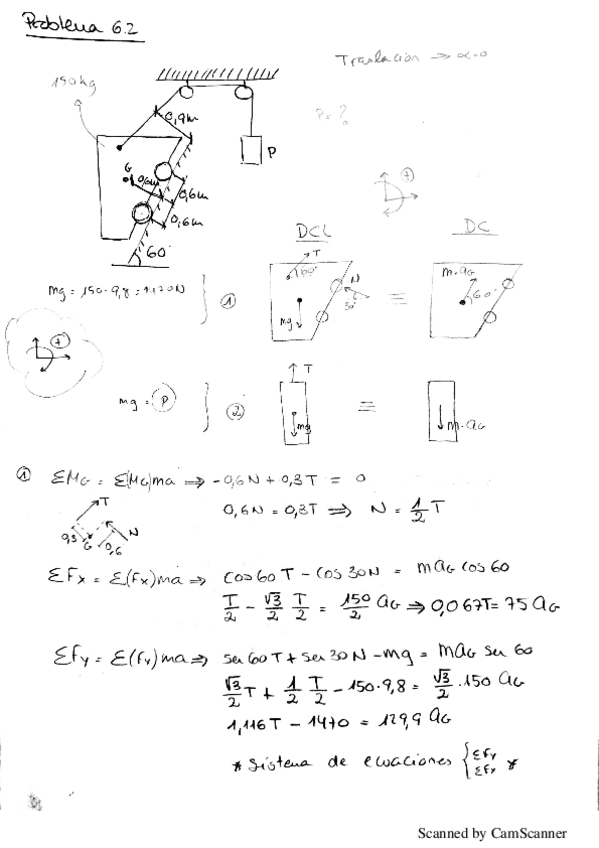 Problema 6.2
Traslación ⇒ α=0
150kg
0,9m
P = ?
P
G
0,6m
0,6m
0,6m
60°
DCL
DC
T
60°
N
30°
mg
m·aG
60°
mg = 150·9,8 = 1470N } ①
≡
T
mg = P } ②
mg
≡
m·aG
① ΣMG = Σ(MG)ma ⇒ -0,6N + 0,3T = 0
0,6N = 0,3T ⇒ N = 1/2 T
T
0,3
G
N
0,6
ΣFx = Σ(Fx)ma ⇒ cos60T - cos30N = maG cos60
T/2 - √3/2 T/2 = 150/2 aG ⇒ 0,067T = 75aG
ΣFy = Σ(Fy)ma ⇒ sen60T + sen30N - mg = maG sen60
√3/2 T + 1/2 T/2 - 150·9,8 = √3/2 · 150 aG
1,116T - 1470 = 129,9 aG
* Sistema de ecuaciones { ΣFy ΣFx *
Scanned by CamScanner